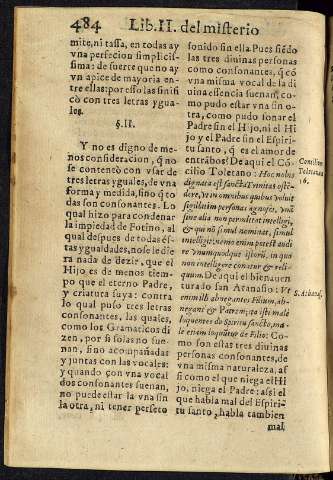 484 Lib. II. del misterio
mite, ni tassa, en todas ay
vna perfecion simplicis-
sima: de suerte que no ay
vn apice de mayoria en-
tre ellas: por esso las sinifi
cò con tres letras ygua-
les.
§. II.
Y no es digno de me-
nos consideracion, q̃ no
se contentò con vsar de
tres letras yguales, de vna
forma y medida, sino q̃ to
das son consonantes. Lo
qual hizo para condenar
la impiedad de Fotino, al
qual despues de todas és-
tas ygualdades, no se le die
ra nada de dezir, que el
Hijo es de menos tiem-
po que el eterno Padre,
y criatura suya: contra
lo qual puso tres letras
consonantes, las quales,
como los Gramaticos di
zen, por si solas no sue-
nan, sino acompañadas
y juntas con las vocales:
y quando con vna vocal
dos consonantes suenan,
no puede estar la vna sin
la otra, ni tener perfeto
sonido sin ella. Pues siẽdo
las tres diuinas personas
como consonantes, q̃ cõ
vna misma vocal de la di
uina essencia suenan, co-
mo pudo estar vna sin o-
tra, como pudo sonar el
Padre sin el Hijo, ni el Hi
jo y el Padre sin el Espiri-
tu santo, q̃ es el amor de
entrãbos? De aqui el Cõ-
cilio Toletano: Hoc nobis
dignata est sancta Trinitas oste-
dere, vt in omnibus quibus voluit
sigillatim personas agnosci, vnã
sine alia non permittat intelligi,
& qui nõ simul nominat, simul
intelligit: nemo enim potest audi
re vnumquodque istorũ, in quo
non intelligere conatur & reli-
quum. De aqui el bienauen
turado san Atanasio: Ve
rum illi abnegantes Filium, ab-
negant & Patrem; ita isti male
loquentes de Spiritu sancto, ma-
le etiam loquũtur de Filio: Co-
mo son estas tres diuinas
personas consonantes, de
vna misma naturaleza, as
si como el que niega el Hi
jo, niega el Padre: assi el
que habla mal del Espiri-
tu santo, habla tambien
mal
Concilio
Toletano
16.
S. Atanas.